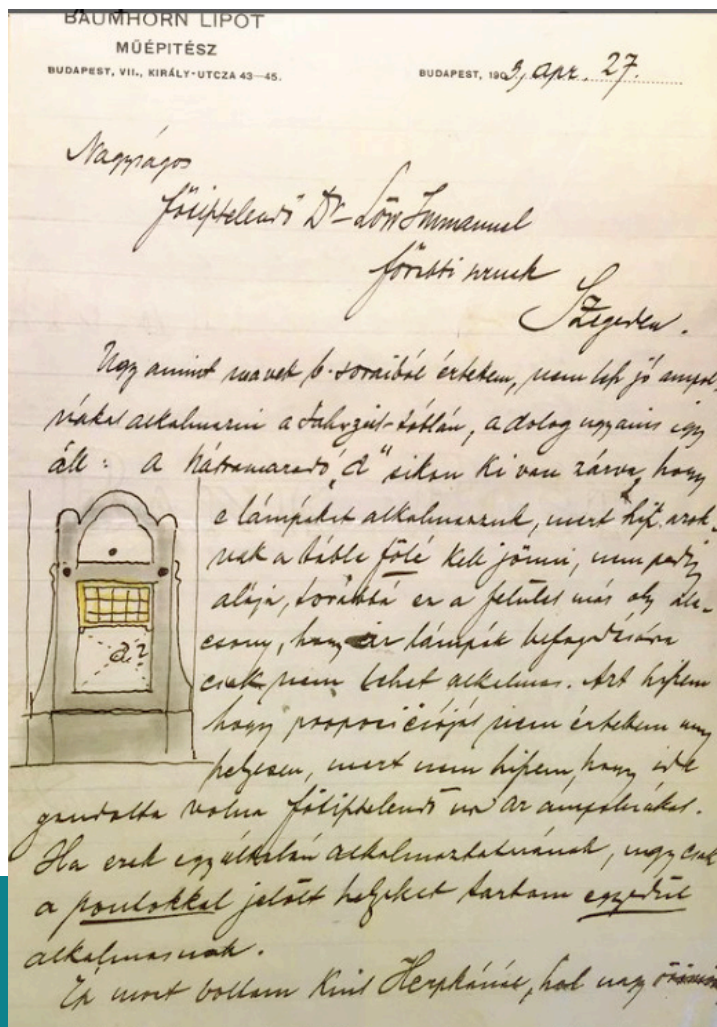 BAUMHORN LIPÓT
MŰÉPITÉSZ
BUDAPEST, VII., KIRÁLY-UTCZA 43—45.
BUDAPEST, 1903, apr. 27.
Nagyságos
főtiptelendő Dr Löw Immanuel
főrabbi urnak
Szegeden.
Ugy amint b. soraiból értettem, nem lesz jó ampol-
nákat alkalmazni a Jahrzeit-táblán, a dolog ugyanis így
áll: A hátramaradó "d" síkon ki van zárva, hogy
e lámpákat alkalmazzuk, mert azok-
nak a tábla fölé kell jönni, nem pedig
alája, továbbá ez a felület más oly ala-
csony, hogy az lámpák befogadására
csak nem lehet alkalmas. Azt hiszem
hogy propozicióját nem értettem meg
helyesen, mert nem hiszem, hogy ide
gondolta volna főtiptelendő úr az ampolnákat.
Ha ezek egyáltalán alkalmaztatnának, ugy csak
a pontokkal jelölt helyeket tartom egyedül
alkalmasnak.
d?
Én most voltam kint hol nagy